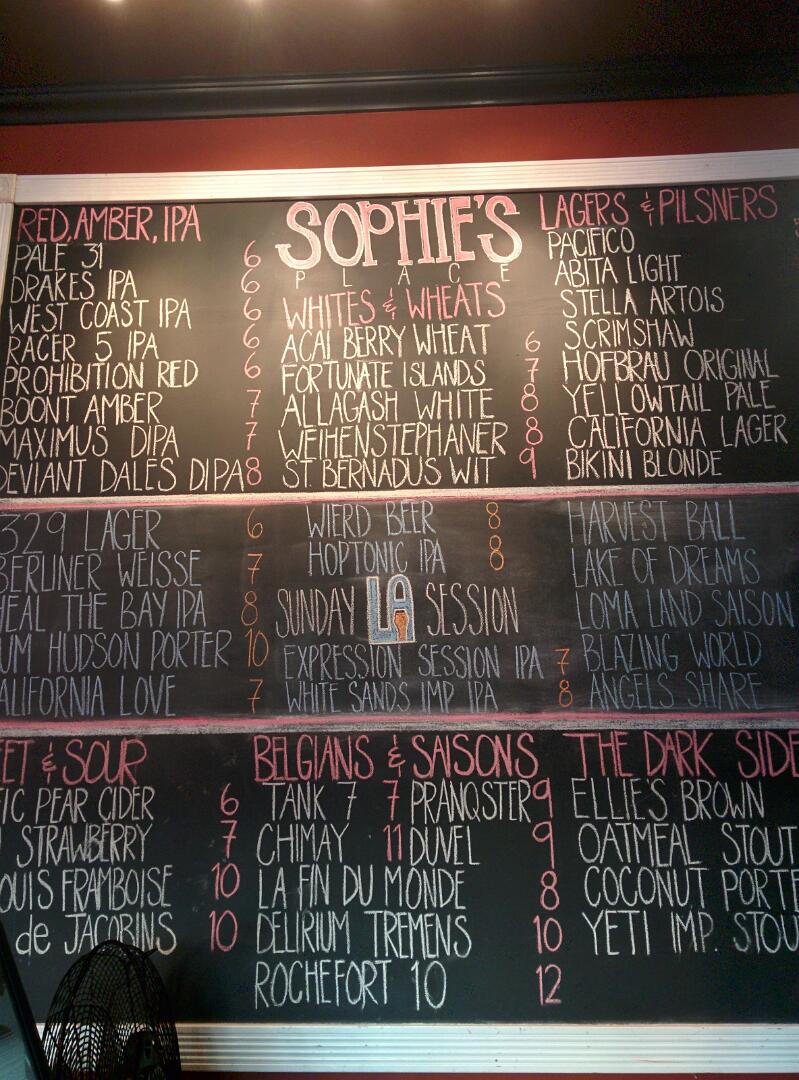 RED, AMBER, IPA
PALE 31 6
DRAKES IPA 6
WEST COAST IPA 6
RACER 5 IPA 6
PROHIBITION RED 6
BOONT AMBER 7
MAXIMUS DIPA 7
DEVIANT DALES DIPA 8
SOPHIE'S
PLACE
WHITES & WHEATS
ACAI BERRY WHEAT 6
FORTUNATE ISLANDS 7
ALLAGASH WHITE 8
WEIHENSTEPHANER 8
ST. BERNADUS WIT 9
LAGERS & PILSNERS
PACIFICO
ABITA LIGHT
STELLA ARTOIS
SCRIMSHAW
HOFBRAU ORIGINAL
YELLOWTAIL PALE
CALIFORNIA LAGER
BIKINI BLONDE
329 LAGER 6
BERLINER WEISSE 7
HEAL THE BAY IPA 8
UM HUDSON PORTER 10
ALIFORNIA LOVE 7
WIERD BEER 8
HOPTONIC IPA 8
SUNDAY LA SESSION
EXPRESSION SESSION IPA 7
WHITE SANDS IMP IPA 8
HARVEST BALL
LAKE OF DREAMS
LOMA LAND SAISON
BLAZING WORLD
ANGELS SHARE
ET & SOUR
IC PEAR CIDER 6
STRAWBERRY 7
OUIS FRAMBOISE 10
de JACOBINS 10
BELGIANS & SAISONS
TANK 7 7 PRANQSTER 9
CHIMAY 11 DUVEL 9
LA FIN DU MONDE 8
DELIRIUM TREMENS 10
ROCHEFORT 10 12
THE DARK SIDE
ELLIE'S BROWN
OATMEAL STOUT
COCONUT PORTE
YETI IMP. STOU